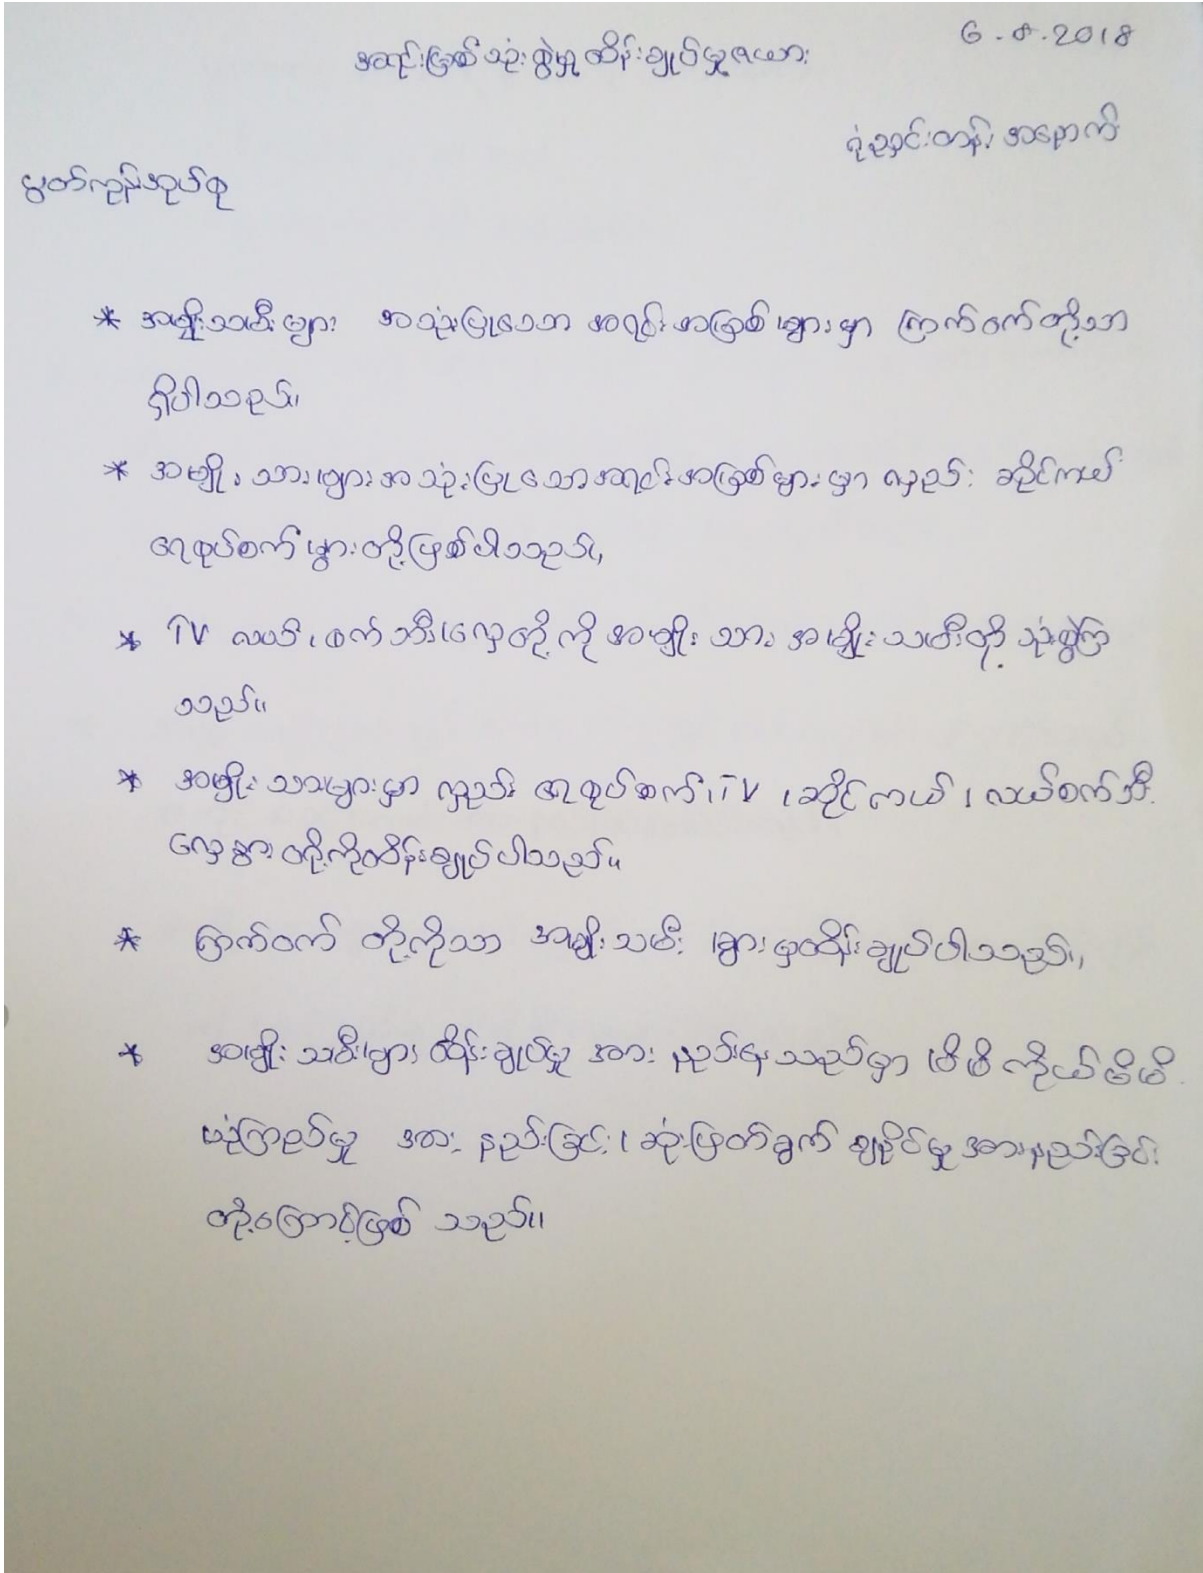 6.8.2018
အရင်းမြစ်သုံးစွဲမှုထိန်းချုပ်မှုဇယား
ရုံညှင်းတန်း အနောက်
မွတ်ကုန်းအုပ်စု
* အမျိုးသမီးများ အသုံးပြုသော အရင်းအမြစ်များမှာ ကြက်ဝက်တို့သာ
ရှိပါသည်။
* အမျိုးသားများအသုံးပြုသောအရင်းအမြစ်များမှာ လှည်း ဆိုင်ကယ်
ရေစုပ်စက်များတို့ဖြစ်ပါသည်။
* TV လယ်၊ စက်ဘီး၊လှေတို့ကို အမျိုးသား အမျိုးသမီးတို့ သုံးစွဲကြ
သည်။
* အမျိုးသားများမှာ လှည်း ရေစုပ်စက်၊TV ၊ဆိုင်ကယ် ၊ လယ်စက်ဘီး
လှေများ တို့ကိုထိန်းချုပ်ပါသည်။
* ကြက်ဝက် တို့ကိုသာ အမျိုးသမီး များမှထိန်းချုပ်ပါသည်။
* အမျိုးသမီးများ ထိန်းချုပ်မှု အား နည်းနေသည်မှာ မိမိကိုယ်မိမိ
ယုံကြည်မှု အား နည်းခြင်း ၊ ဆုံးဖြတ်ချက် ချနိုင်မှုအားနည်းခြင်း
တို့ကြောင့်ဖြစ် သည်။